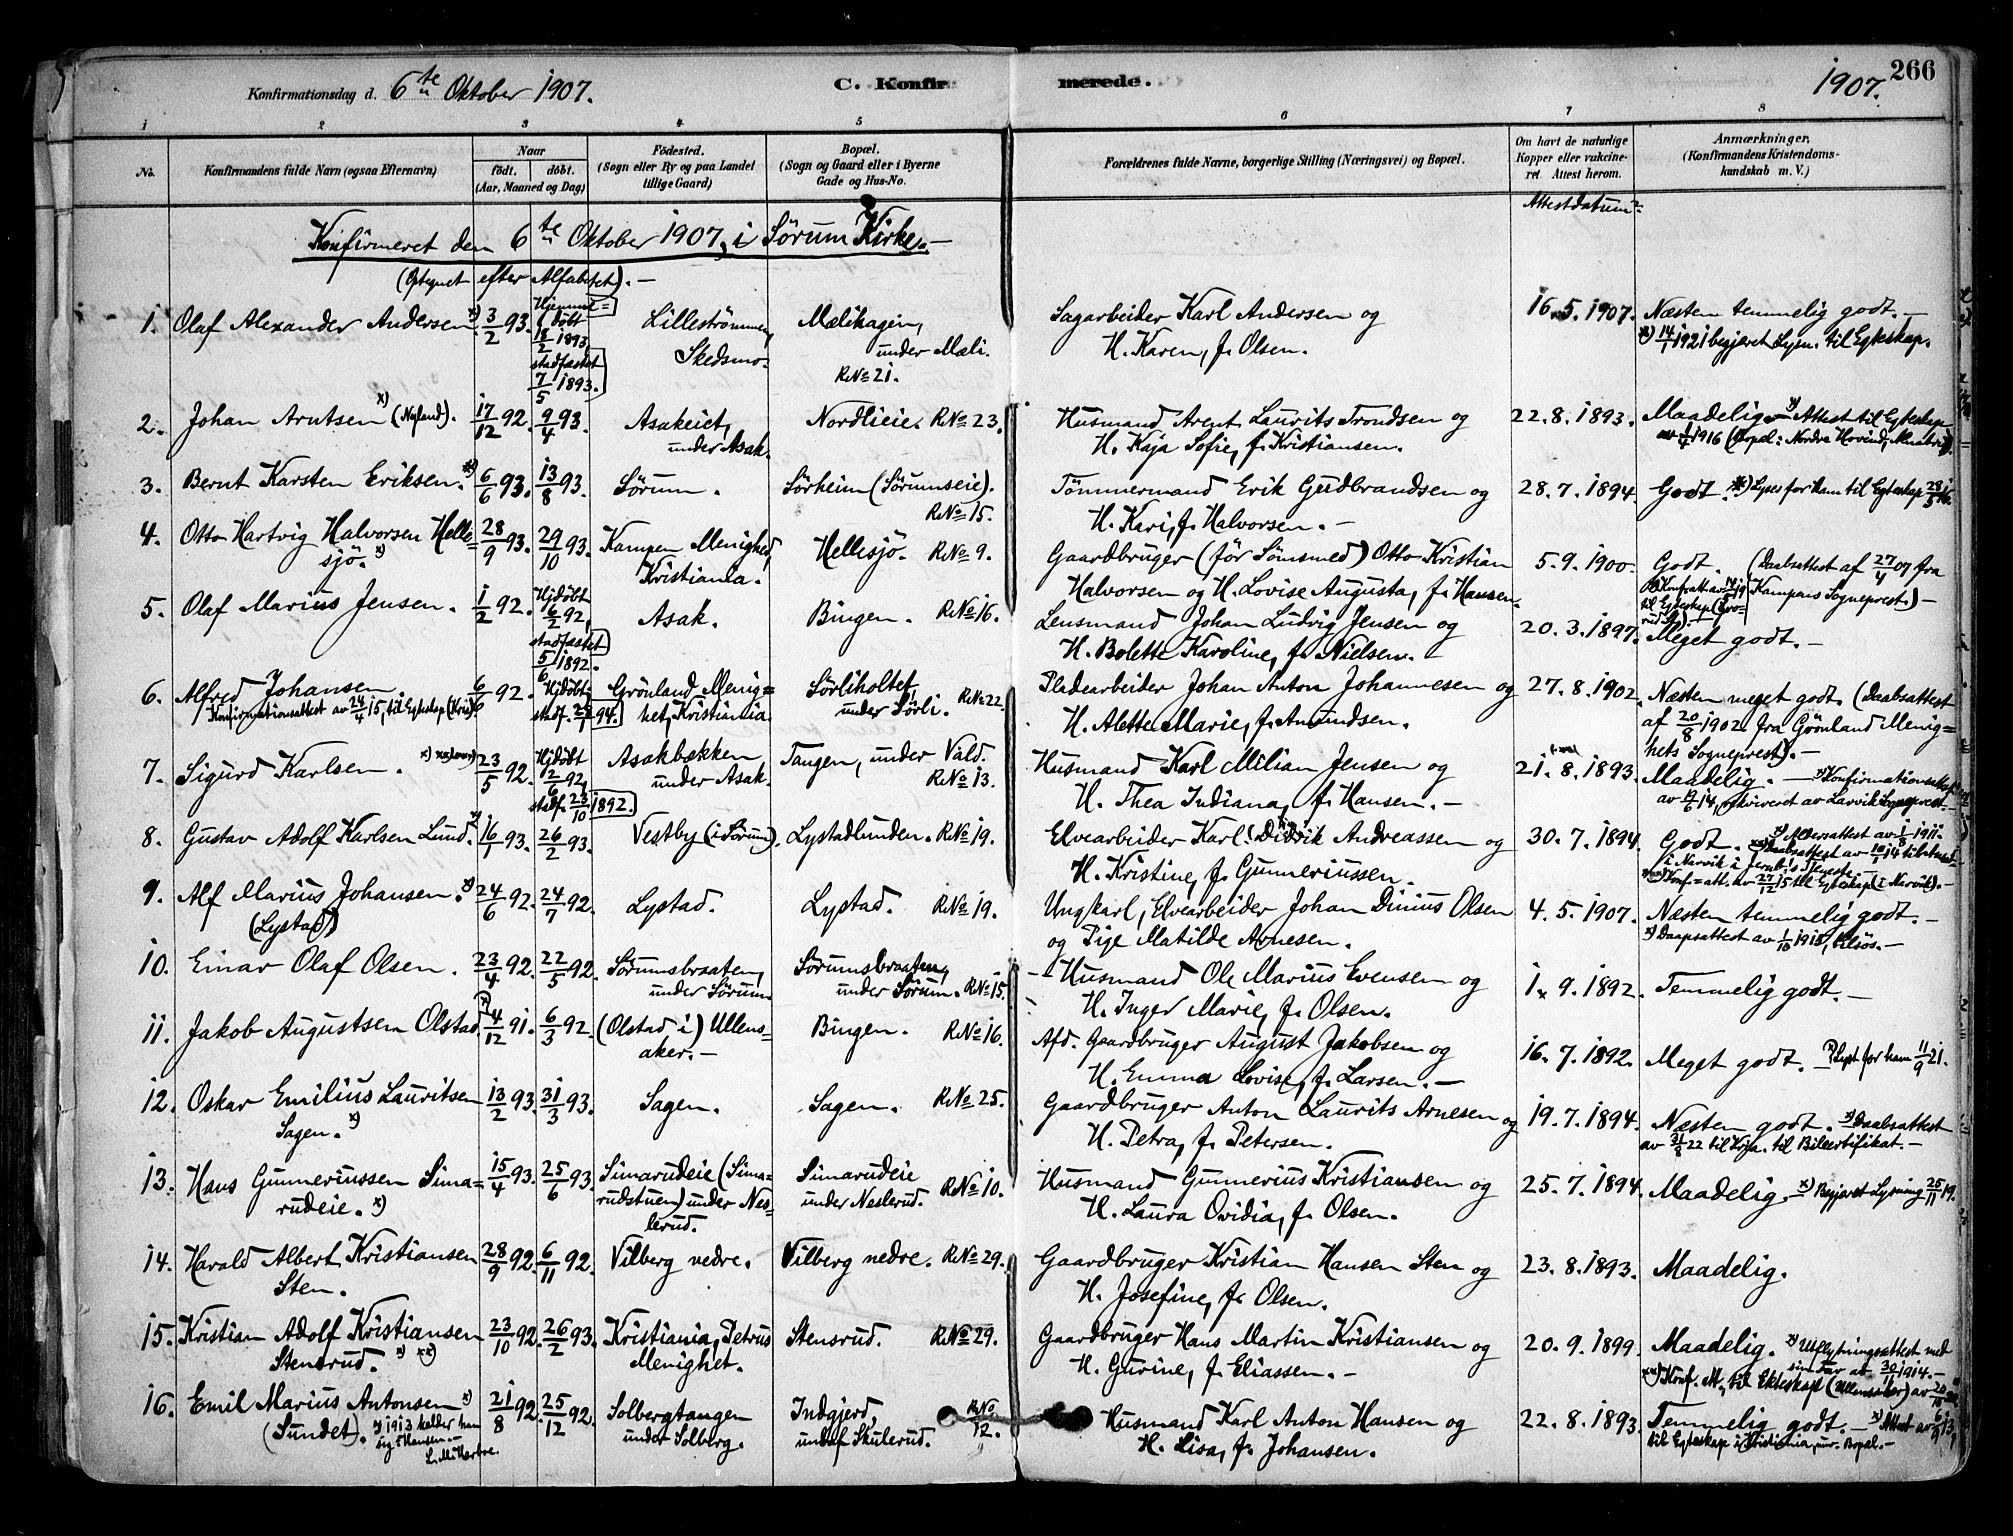 Konfirmationsdag d. 6te Oktober 1907.
C. Konfirmerede.
1907. 266
1 2 3 4 5 6 7 8
No.
Konfirmandens fulde Navn (ogsaa Efternavn)
Naar
födt. döbt.
(Aar, Maaned og Dag)
Födested.
(Sogn eller By og paa Landet
tillige Gaard)
Bopæl.
(Sogn og Gaard eller i Byerne
Gade og Hus-No.
Forældrenes fulde Navne, borgerlige Stilling (Næringsvei) og Bopæl.
Om havt de naturlige
Kopper eller vakcine-
ret. Attest herom.
Anmærkninger,
(Konfirmandens Kristendoms-
kundskab m. V.)
Attestdatum:
Konfirmeret den 6te Oktober 1907, i Sörum Kirke.—
(Optegnet efter Alfabetet).—
1. Olaf Alexander Andersen x) 3/2 93. Hjemme=
döbt
18/2 1893,
stadfæstet
7/5 1893.
Lillestrømmen,
Skedsmo.
Mælihagen,
under Mæli.
R.No 21.
Sagarbeider Karl Andersen og
H. Karen, f. Olsen.
16.5.1907. Næsten temmelig godt.—
x) 14/1 1921 begjæret Lysn. til Egteskap.
2. Johan Arntsen x) (Nyland). 17/12 92. 9/4 93. Asakeiet,
under Asak.
Nordlieie. R.No 23.
Husmand Arent Laurits Trondsen og
H. Kaja Sofie, f. Kristiansen.
22.8.1893. Maadelig— x) Attest til Egteskap
1916 (Bopæl: Nordre Hovind,
3. Bernt Karsten Eriksen. x) 6/6 93. 13/8 93. Sörum. Sörheim (Sörumseie).
R.No 15.
Tömmermand Erik Gudbrandsen og
H. Kari, f. Halvorsen.—
28.7.1894. Godt. x) Lyses for ham til Egteskap 28/5
4. Otto Hartvig Halvorsen Helle=
sjö. x)
28/9 93. 29/10 93. Kampen Menighed,
Kristiania.
Hellesjö. R.No 9.
Gaardbruger (för Sömsmed) Otto Kristian
Halvorsen og H. Lovise Augusta, f. Hansen.
5.9.1900. Godt. (Daabsattest af 27/4 07 fra
Kampens Sogneprest.)—
til Egteskap
5. Olaf Marius Jensen. 1/2 92. Hjdöbt
16/2 92,
stadfæstet
5/6 1892.
Asak. Bingen. R.No 16.
Lensmand Johan Ludvig Jensen og
H. Bolette Karoline, f. Nielsen.—
20.3.1897. Meget godt.—
6. Alfred Johansen.
Konfirmationsattest av 24/4 15, til Egteskap (Kria)
6/6 92. Hjdöbt
stadf. 94.
Grönland Menig=
het, Kristiania.
Sörliholtet
under Sörli. R.No 22.
Pladearbeider Johan Anton Johannesen og
H. Alette Marie, f. Amundsen.
27.8.1902. Næsten meget godt. (Daabsattest
af 20/8 1902 fra Grönland Menig=
hets Sogneprest).—
7. Sigurd Karlsen. x) 23/5 92. Hjdöbt
2/6 92,
stadf. 23/10 1892.
Asakbækken
under Asak.
Tangen, under Vald.
R.No 13.
Husmand Karl Milian Jensen og
H. Thea Indiana, f. Hansen.—
21.8.1893. Maadelig.— x) Konfirmationsattest
av 19/6 14, rekvireret av Larvik Sogneprest.—
8. Gustav Adolf Karlsen Lund. x) 16/1 93. 26/2 93. Vestby (i Sörum). Lystadlunden. R.No 19.
Elvearbeider Karl Didrik Andreassen og
H. Kristine, f. Gunneriussen.
30.7.1894. Godt. x) Aldersattest av 1911.
xx) Daabsattest av 10/1 14 til
i Narvik i
Konf=att. av 27/12 15 til Egteskap (i Narvik).—
9. Alf Marius Johansen. x)
(Lystad)
24/6 92. 24/7 92. Lystad. Lystad. R.No 19.
Ungkarl, Elvearbeider Johan Dinius Olsen
og Pige Matilde Arnesen.
4.5.1907. Næsten temmelig godt.—
x) Daapsattest av 1/10 1918, tilsös.—
10. Einar Olaf Olsen. 23/4 92. 22/5 92. Sörumsbraaten,
under Sörum.
Sörumsbraaten,
under Sörum. R.No 15.
Husmand Ole Marius Evensen og
H. Inger Marie, f. Olsen.
1.9.1892. Temmelig godt.—
11. Jakob Augustsen Olstad. x) 4/12 91. 6/3 92. (Olstad i) Ullens-
aker.—
Bingen. R.No 16.
Afd. Gaardbruger August Jakobsen og
H. Emma Lovise, f. Larsen.—
16.7.1892. Meget godt.— x) Lyst for ham 11/9 21.
12. Oskar Emilius Lauritsen
Sagen. x)
13/2 93. 31/3 93. Sagen. Sagen. R.No 25.
Gaardbruger Anton Laurits Arnesen og
H. Petra, f. Petersen.
19.7.1894. Næsten godt. x) Daabsattest
av 31/8 22 til Kria. til Bilcertifikat.—
13. Hans Gunneriussen Sima=
rudeie. x)
15/4 93. 25/6 93. Simarudeie (Sima-
rudstuen) under Nes-
lerud.
Simarudeie
under Neslerud. R.No 10.
Husmand Gunnerius Kristiansen og
H. Laura Ovidia, f. Olsen.
25.7.1894. Maadelig.— x) Begjæret Lysning 25/11 19.
14. Harald Albert Kristiansen
Sten.
28/9 92. 6/11 92. Vilberg nedre. Vilberg nedre. R.No 29.
Gaardbruger Kristian Hansen Sten og
H. Josefine, f. Olsen.
23.8.1893. Maadelig.
15. Kristian Adolf Kristiansen
Stensrud. x) xx)
23/10 92. 26/2 93. Kristiania, Petrus
Menighet.
Stensrud. R.No 29.
Gaardbruger Hans Martin Kristiansen og
H. Gurine, f. Eliassen.—
20.9.1899. Maadelig. x) Utflytningsattest med
sin Far av 30/11 1914.—
xx) Konf. att. til Ekteskap (Ullensaker) av 20/10
16. Emil Marius Antonsen x)
(Sundet). x) 1913 kalder han
sig "Hansen.—
21/8 92. 25/12 92. Solbergtangen
under Solberg.
Indgjerd,
undaf Skulerud. R.No 12.
Husmand Karl Anton Hansen og
H. Lisa, f. Johansen.
22.8.1893. Temmelig godt.— x) Attest av 6/9 13,
til Egteskap i Kristiania, nuv. Bopæl.—